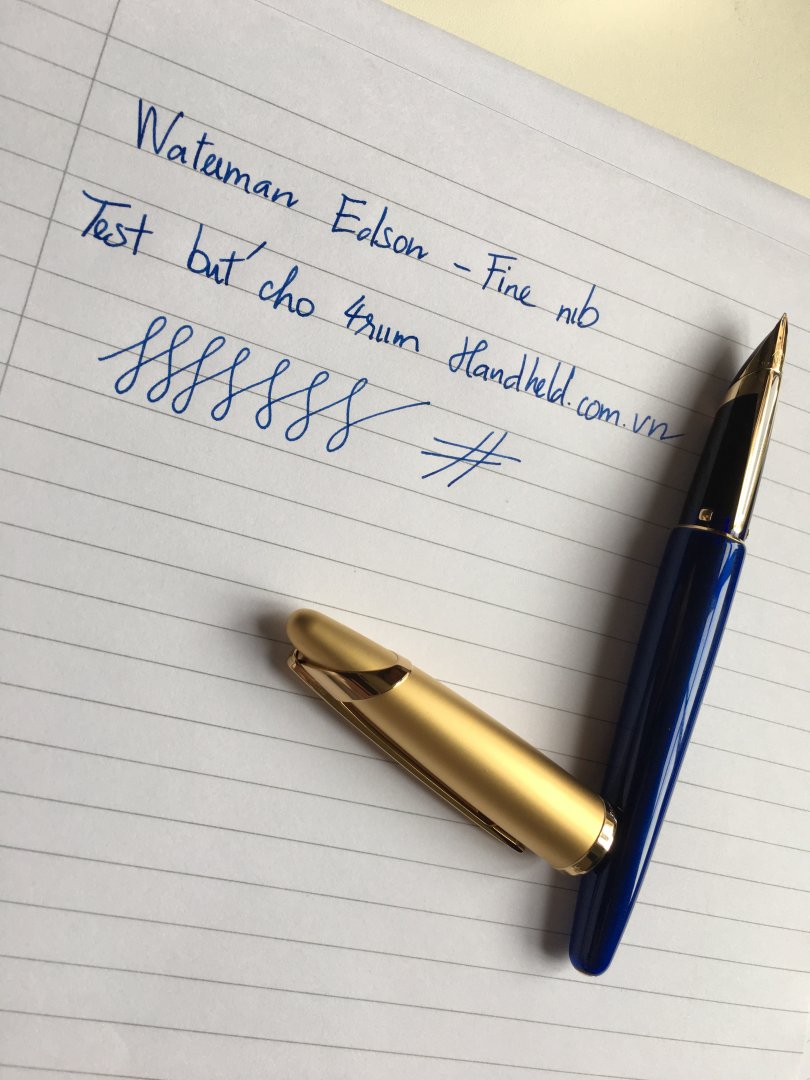 Waterman Edson - Fine nib
Test bút cho 4rum Handheld.com.vn